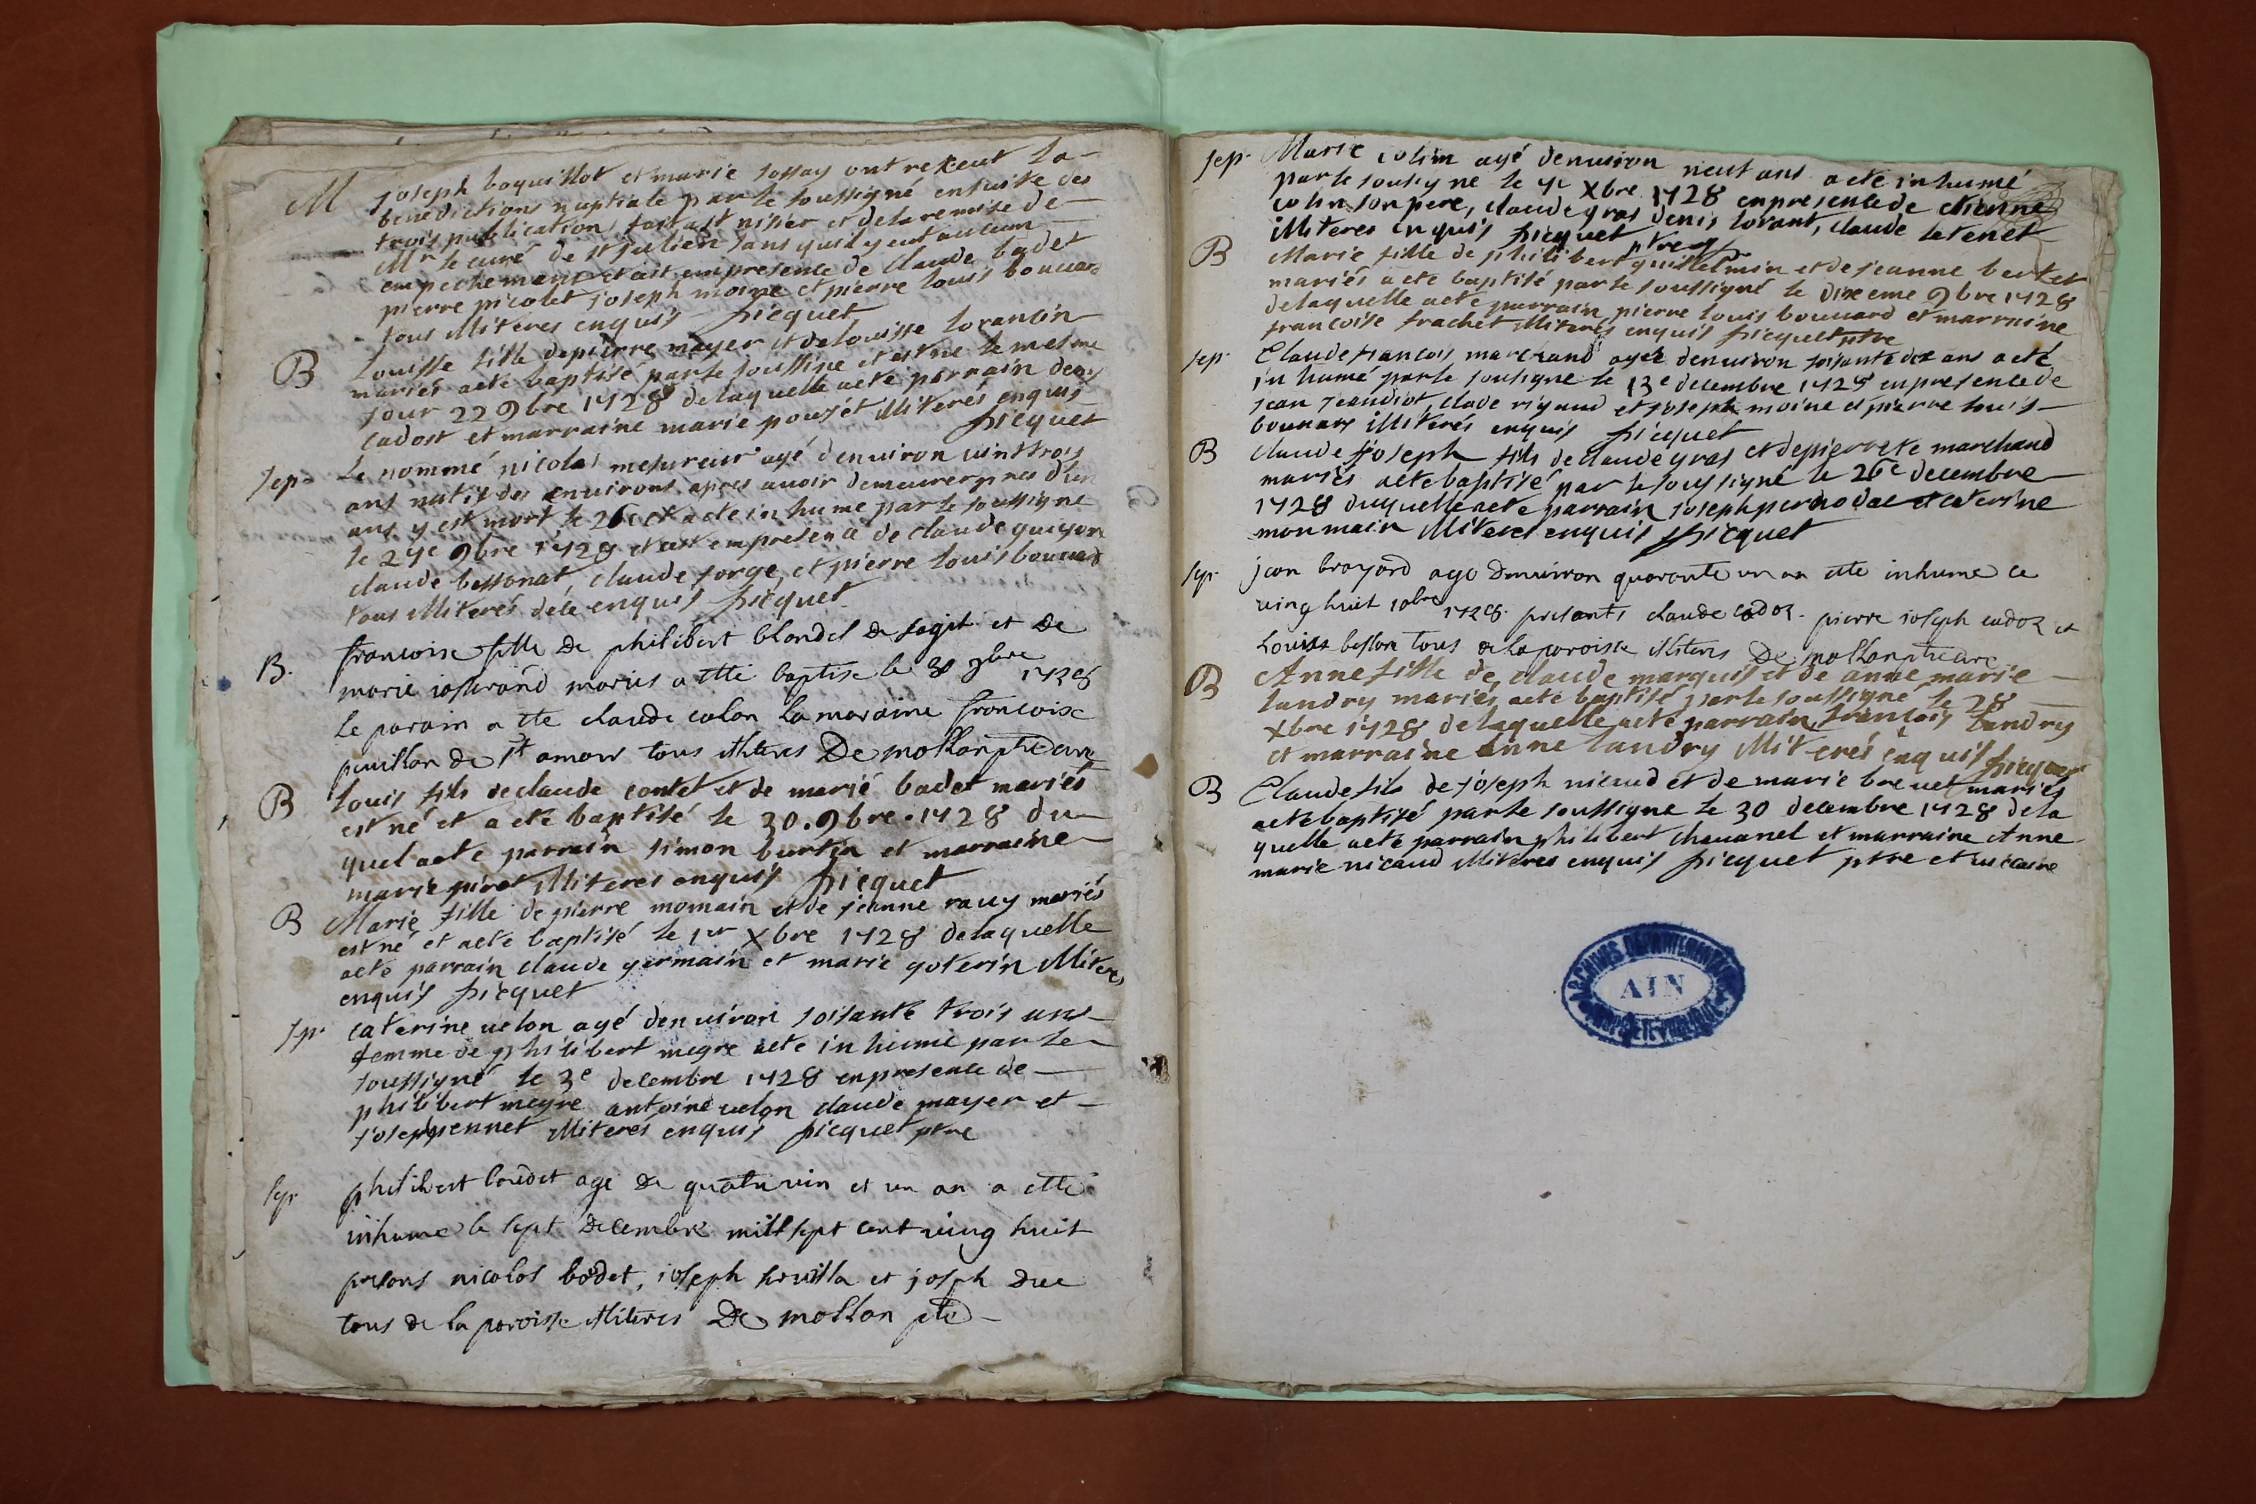 M joseph boquillot et marie sossay ont rekeut la
benedictions nuptiale par le soussigné ensuite des
trois publication fait a st nisier et de la remise de
Mr le curé de st julien sans quil y eut aucum
empechemant et ait empresence de claude badet
pierre picolet joseph moine et pierre louis bouuard
tous illiteres enquis picquet
B Louisse fille de pierre mayer et de louisse lorantin
mariés a eté baptisé par le soussine et est ne le mesme
jour 22 9bre 1728 de laquelle a eté parrain deny
cadost et marraine marie pouset illiterés enquis
picquet
sep. Le nommé nicolas mesureur agé d'enuiron uint trois
ans natif des enuirons apres auoir demeurer pres d'un
ans y est mort le 26e et a eté inhumé par le soussigne
le 27e 9bre 1728 et ait empresence de claude guigon
claude bessonat, claude forge, et pierre louis bouuard
tous illiterés de ce enquis picquet
B. francoise fille de philibert blondel de sagit et de
marie josserand mariés a etté baptise le 30 9bre 1728
le parain a ete claude colon la maraine francoise
puillon de st amour tous illiteres De mollan ptre cure
B Louis fils de claude contet et de marie badet mariés
est né et a eté baptisé le 30. 9bre. 1728 du
quel a eté parrain simon burtin et marraine
marie pirot illiteres enquis picquet
B Marie fille de pierre momain et de jeanne rauy mariés
est né et a eté baptisé le 1er Xbre 1728 de laquelle
a eté parrain claude germain et marie goterin illiteres
enquis picquet
sp. caterine uelon agé denuiron soisante trois ans
femme de philibert megre a eté inhumé par le
soussigné le 3e decembre 1728 en presence de
philibert megre antoine uelon claude mayer et
joseph pennet illiteres enquis picquet ptre
sp. philibert bodet age de quatruin et un an a etté
inhume le sept decembre mill sept cent uing huit
presans nicolas bodet, joseph et joseph duc
tous de la paroisse illiteres De mollan ptre
sep. Marie colin agé denuiron neuf ans a eté inhumé
par le sousigne le 9e Xbre 1728 en presence de etienne
colin son pere, claude gras denis lorant, claude
illiteres enquis picquet ptre
B Marie fille de philibert guillelmin et de jeanne berket
mariés a eté baptisé par le soussigné le dixeme 9bre 1728
de laquelle a eté parrain pierre louis bouuard et marraine
francoise frachet illiterés enquis picquet ptre
sep. Claude francois marchand agér denuiron soisante dex ans a eté
inhumé par le sousigne le 13e decembre 1728 en presence de
jean jeandiot, clade rigaud et joseph moine et pierre louis
bouuars illiterés enquis picquet
B claude joseph fils de claude gras et de pierrete marchand
mariés a eté baptisé par le sousigné le 26e decembre
1728 duquelle a eté parrain joseph pernodat et caterine
monmain illiteres enquis picquet
sp. jean brayard age denuiron quarante un an etté inhume ce
uing huit 10bre 1728. presants claude cadoz. pierre joseph cadoz et
Louisz beslon tous de la paroisse illiteres De mollan ptre cure
B Anne fille de claude marquis et de anne marie
landry mariés a eté baptisé par le soussigné le 28
Xbre 1728 de laquelle a eté parrain francois landry
et marraine anne landry illiterés enquis picquet
B Claude fils de joseph nicaud et de marie breuet mariés
a eté baptisé par le soussigne le 30 decembre 1728 de la
quelle a eté parrain philibert chauanel et marraine Anne
marie nicaud illiteres enquis picquet ptre et uicaire
ARCHIVES DEPARTEMENTALES
AIN
PROPRIETE PUBLIQUE